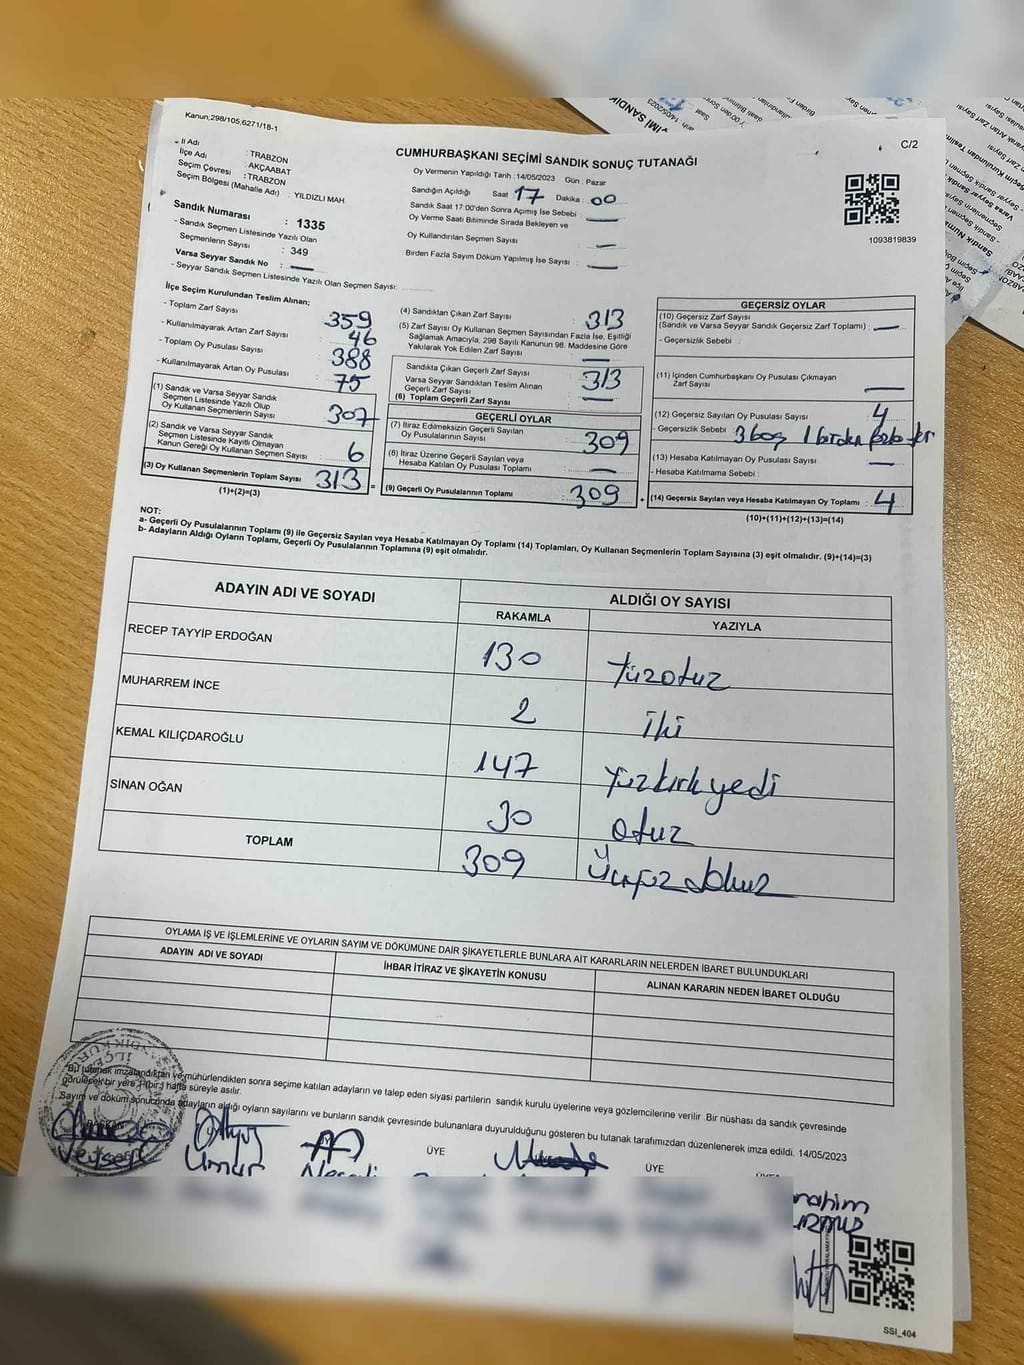 Kanun;298/105,6271/18-1
C/2
CUMHURBAŞKANI SEÇİMİ SANDIK SONUÇ TUTANAĞI
İl Adı : TRABZON
İlçe Adı : AKÇAABAT
Seçim Çevresi : TRABZON
Seçim Bölgesi (Mahalle Adı) : YILDIZLI MAH.
Sandık Numarası : 1335
- Sandık Seçmen Listesinde Yazılı Olan
Seçmenlerin Sayısı : 349
Varsa Seyyar Sandık No :
- Seyyar Sandık Seçmen Listesinde Yazılı Olan Seçmen Sayısı:
Oy Vermenin Yapıldığı Tarih : 14/05/2023 Gün : Pazar
Sandığın Açıldığı Saat 17 Dakika : 00
Sandık Saat 17:00'den Sonra Açılmış İse Sebebi
Oy Verme Saati Bitiminde Sırada Bekleyen ve
Oy Kullandırılan Seçmen Sayısı
Birden Fazla Sayım Döküm Yapılmış İse Sayısı :
1093819839
İlçe Seçim Kurulundan Teslim Alınan;
- Toplam Zarf Sayısı : 359
- Kullanılmayarak Artan Zarf Sayısı : 46
- Toplam Oy Pusulası Sayısı : 388
- Kullanılmayarak Artan Oy Pusulası : 75
(1) Sandık ve Varsa Seyyar Sandık
Seçmen Listesinde Yazılı Olup
Oy Kullanan Seçmenlerin Sayısı : 307
(2) Sandık ve Varsa Seyyar Sandık
Seçmen Listesinde Kayıtlı Olmayan
Kanun Gereği Oy Kullanan Seçmen Sayısı : 6
(3) Oy Kullanan Seçmenlerin Toplam Sayısı : 313
(1)+(2)=(3)
(4) Sandıktan Çıkan Zarf Sayısı : 313
(5) Zarf Sayısı Oy Kullanan Seçmen Sayısından Fazla İse, Eşitliği
Sağlamak Amacıyla, 298 Sayılı Kanunun 98. Maddesine Göre
Yakılarak Yok Edilen Zarf Sayısı :
Sandıkta Çıkan Geçerli Zarf Sayısı : 313
Varsa Seyyar Sandıktan Teslim Alınan
Geçerli Zarf Sayısı :
(6) Toplam Geçerli Zarf Sayısı :
GEÇERLİ OYLAR
(7) İtiraz Edilmeksizin Geçerli Sayılan
Oy Pusulalarının Sayısı : 309
(8) İtiraz Üzerine Geçerli Sayılan veya
Hesaba Katılan Oy Pusulası Toplamı :
= (9) Geçerli Oy Pusulalarının Toplamı : 309 +
GEÇERSİZ OYLAR
(10) Geçersiz Zarf Sayısı
(Sandık ve Varsa Seyyar Sandık Geçersiz Zarf Toplamı) :
- Geçersizlik Sebebi :
(11) İçinden Cumhurbaşkanı Oy Pusulası Çıkmayan
Zarf Sayısı :
(12) Geçersiz Sayılan Oy Pusulası Sayısı : 4
- Geçersizlik Sebebi : 3 boş 1 birden fazla ter
(13) Hesaba Katılmayan Oy Pusulası Sayısı :
- Hesaba Katılmama Sebebi :
(14) Geçersiz Sayılan veya Hesaba Katılmayan Oy Toplamı : 4
(10)+(11)+(12)+(13)=(14)
NOT:
a- Geçerli Oy Pusulalarının Toplamı (9) ile Geçersiz Sayılan veya Hesaba Katılmayan Oy Toplamı (14) Toplamları, Oy Kullanan Seçmenlerin Toplam Sayısına (3) eşit olmalıdır. (9)+(14)=(3)
b- Adayların Aldığı Oyların Toplamı, Geçerli Oy Pusulalarının Toplamına (9) eşit olmalıdır.
ADAYIN ADI VE SOYADI
ALDIĞI OY SAYISI
RAKAMLA YAZIYLA
RECEP TAYYİP ERDOĞAN 130 Yüzotuz
MUHARREM İNCE 2 iki
KEMAL KILIÇDAROĞLU 147 Yüzkırkyedi
SİNAN OĞAN 30 otuz
TOPLAM 309 Üçyüz dokuz
OYLAMA İŞ VE İŞLEMLERİNE VE OYLARIN SAYIM VE DÖKÜMÜNE DAİR ŞİKAYETLERLE BUNLARA AİT KARARLARIN NELERDEN İBARET BULUNDUKLARI
ADAYIN ADI VE SOYADI İHBAR İTİRAZ VE ŞİKAYETİN KONUSU ALINAN KARARIN NEDEN İBARET OLDUĞU
Bu tutanak imzalandıktan ve mühürlendikten sonra seçime katılan adayların ve talep eden siyasi partilerin sandık kurulu üyelerine veya gözlemcilerine verilir. Bir nüshası da sandık çevresinde
görülecek bir yere 1 (bir) hafta süreyle asılır.
Sayım ve döküm sonucunda adayların aldığı oyların sayılarını ve bunların sandık çevresinde bulunanlara duyurulduğunu gösteren bu tutanak tarafımızdan düzenlenerek imza edildi. 14/05/2023
BAŞKAN ÜYE ÜYE
Umur
SSI_404